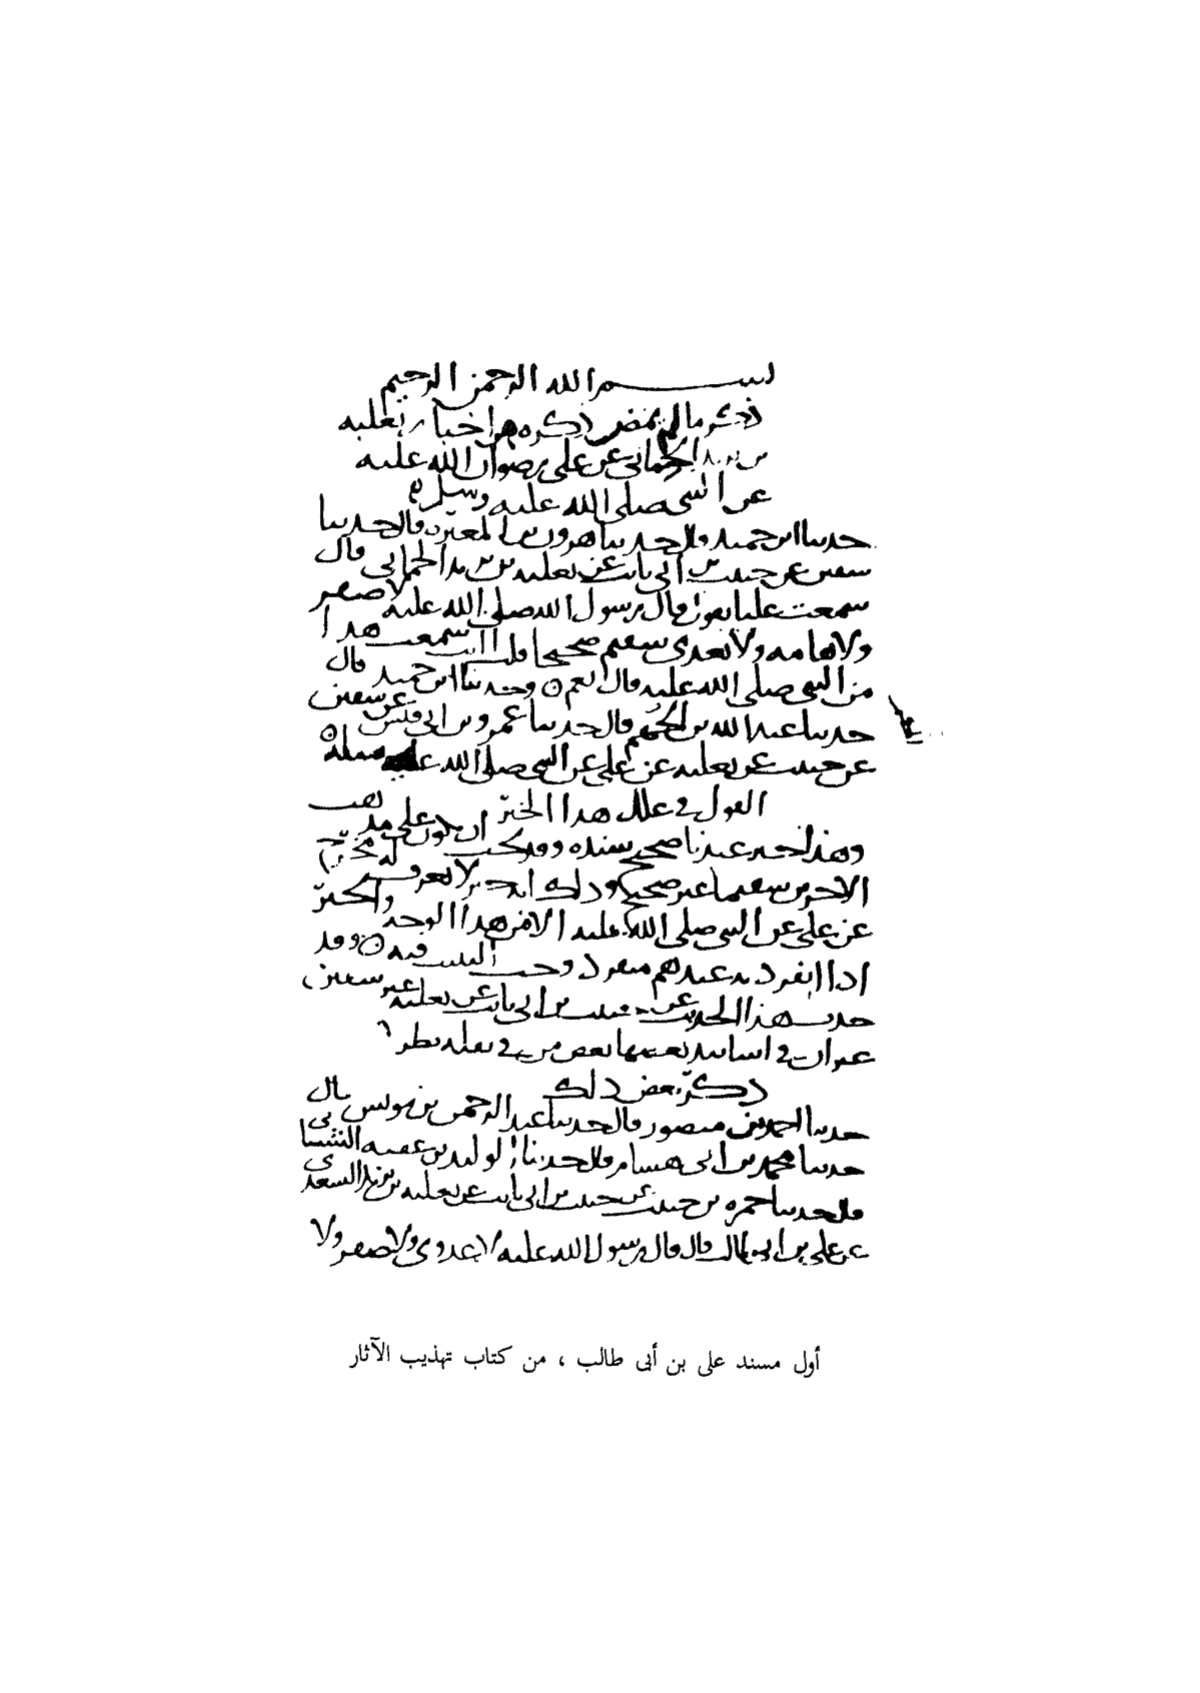 بسم الله الرحمن الرحيم
ذكر ما لم يمض ذكره من اخبار ثعلبه
بن يزيد الحماني عن علي رضوان الله عليه
عن النبي صلى الله عليه وسلم
حدثنا ابن حميد قال حدثنا هرون بن المغيره قال حدثنا
سفين عن حبيب بن ابي ثابت عن ثعلبه بن يزيد الحماني قال
سمعت عليا يقول قال رسول الله صلى الله عليه لا صفر
ولا هامه ولا يعدي سقيم صحيحا قلت اانت سمعت هذا
من النبي صلى الله عليه قال نعم ٥ وحدثنا ابن حميد قال
حدثنا عبد الله بن الجهم قال حدثنا عمرو بن ابي قيس عن سفين
عن حبيب عن ثعلبه عن علي عن النبي صلى الله عليه مثله ٥
القول في علل هذا الخبر
وهذا خبر عندنا صحيح سنده وقد يجب ان يكون على مذهب
الاخرين سقيما غير صحيح وذلك انه خبر لا يعرف له مخرج
عن علي عن النبي صلى الله عليه الا من هذا الوجه والخبر
اذا انفرد به عندهم منفرد وجب التثبت فيه ٥ وقد
حدث هذا الحديث عن حبيب بن ابي ثابت عن ثعلبه غير سفين
غير ان في اسانيد بعضها بعض من في نقله نظر
ذكر بعض ذلك
حدثنا احمد بن منصور قال حدثنا عبد الرحمن بن يونس قال
حدثنا محمد بن ابي هشام قال حدثنا الوليد بن عقبه الشيباني
قال حدثنا حمزه بن حبيب عن حبيب بن ابي ثابت عن ثعلبه بن يزيد السعدي
عن علي بن ابي طالب قال قال رسول الله عليه لا عدوى ولا صفر ولا
أول مسند على بن أبى طالب ، من كتاب تهذيب الآثار